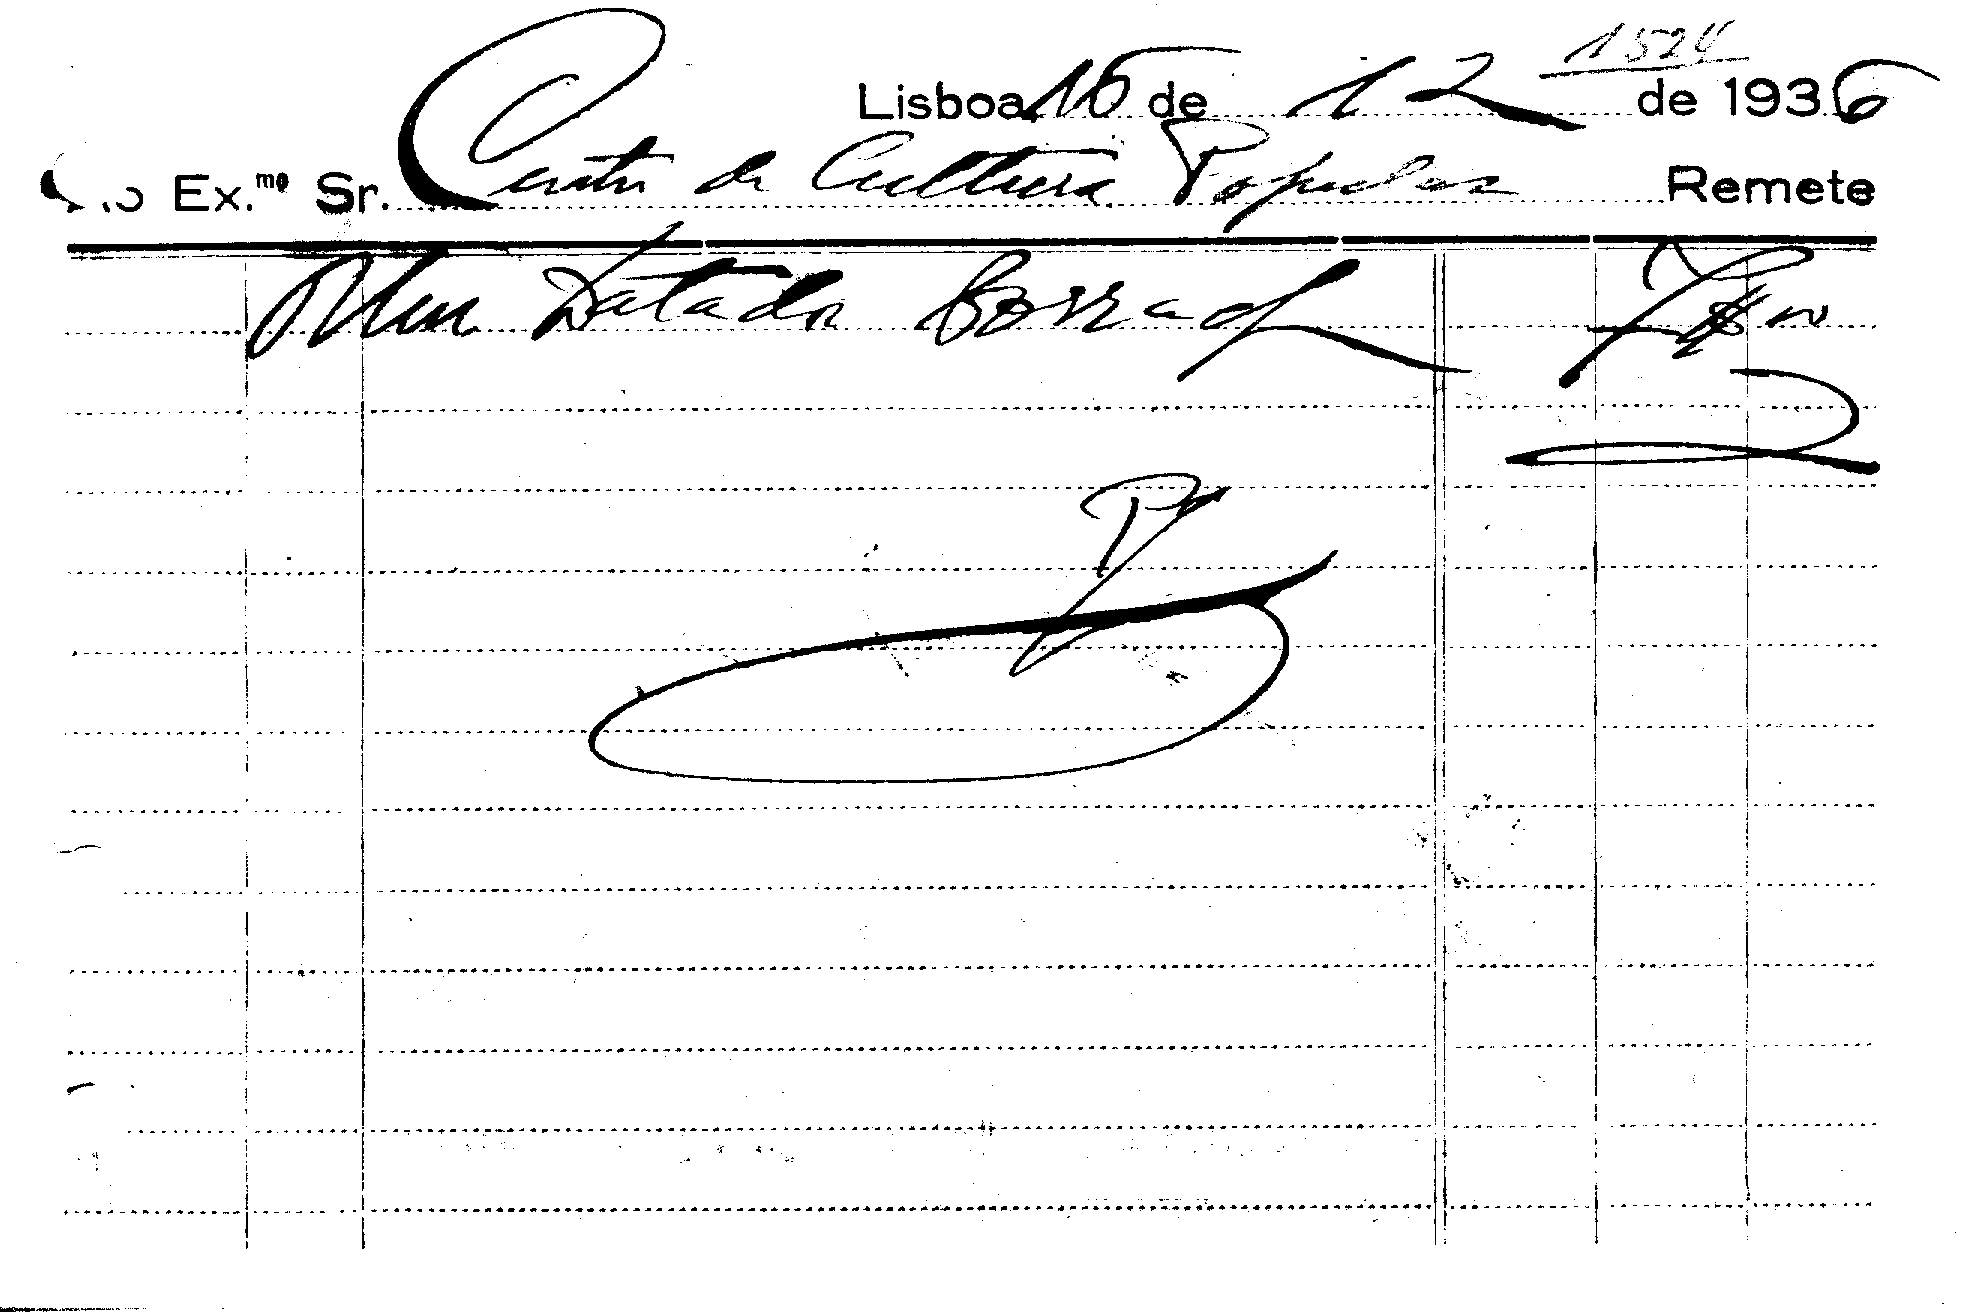 1524
Lisboa 16 de 12 de 1936
Ex.mo Sr. Centro de Cultura Popular Remete
Uma Datada Borrach 7$00
P